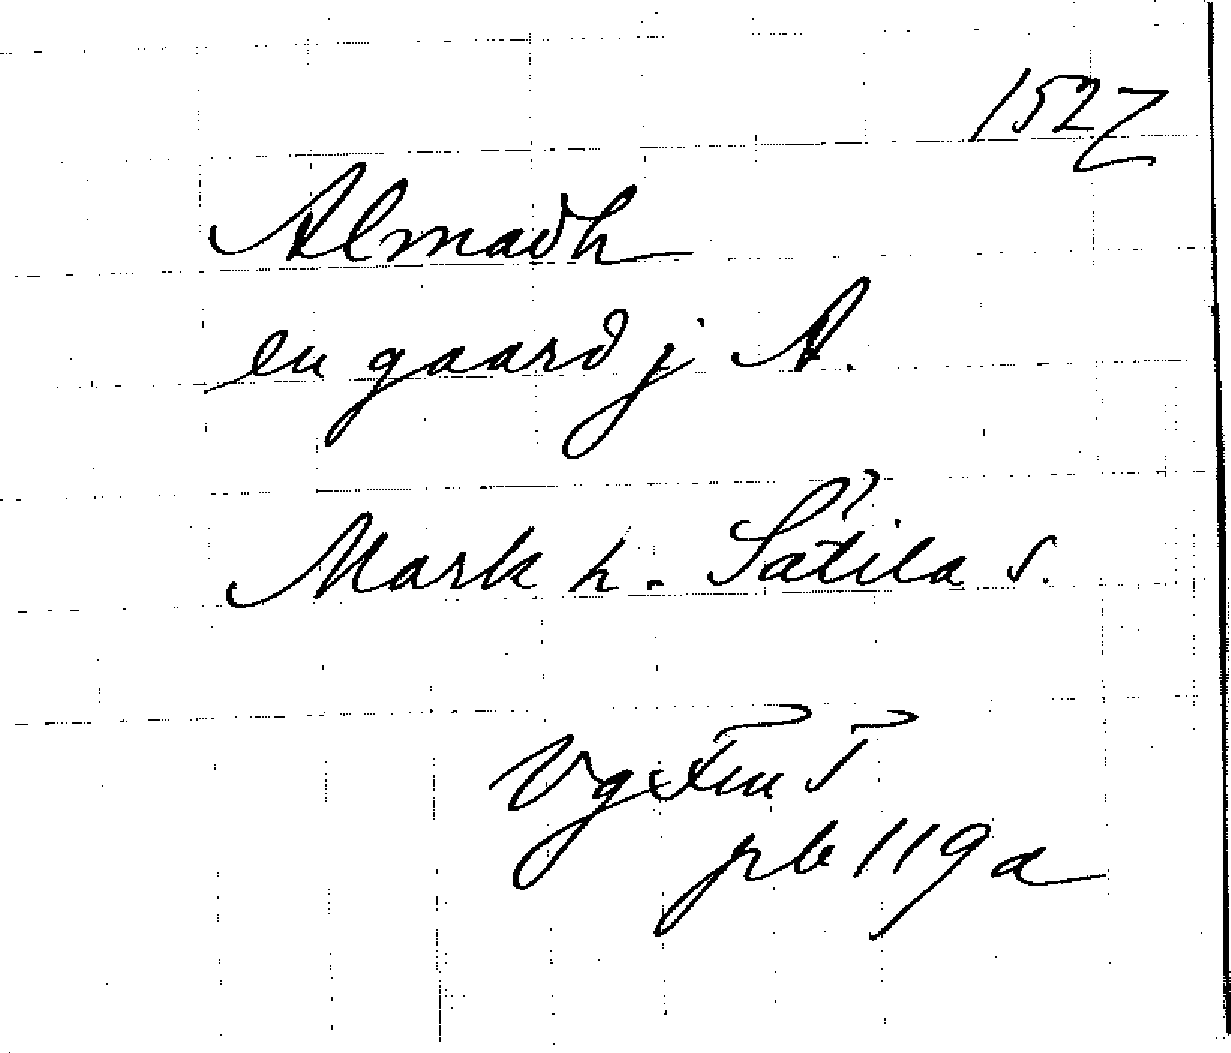 1527
Almadh
en gaard j A.
Mark h. Sätila s.
Vg Fru T
pb 119 a